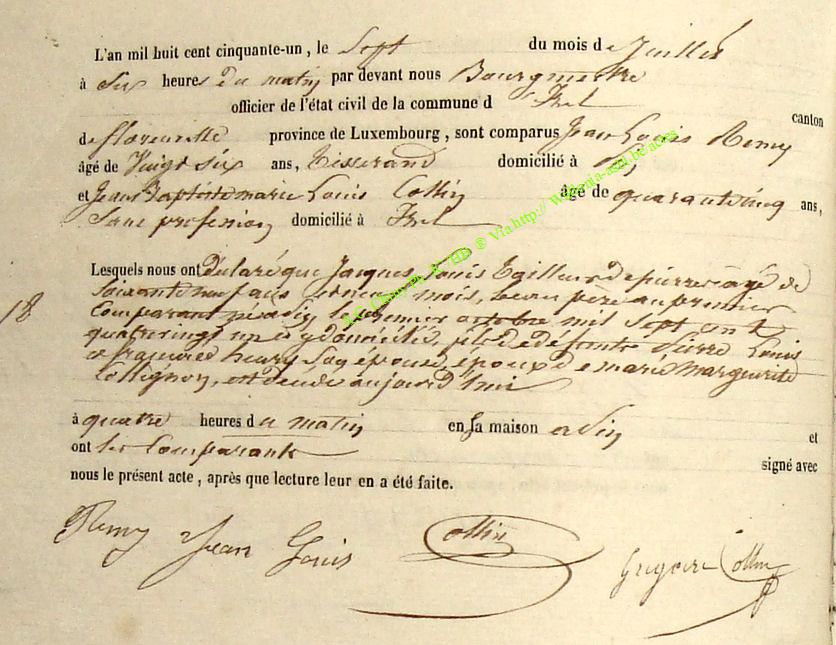 L'an mil huit cent cinquante-un, le Sept du mois de Juillet
à Six heures du matin par devant nous Bourgmestre
officier de l'état civil de la commune d canton
de florenville province de Luxembourg, sont comparus Jean Louis Remy
âgé de Vingt Six ans, Tisserand domicilié à
et Jean Baptiste marie Louis Collin âgé de quarante cinq ans,
Sans profession domicilié à
Lesquels nous ont déclaré que Jacques Louis Tailleur de pierre âgé de
18
Soixante neuf ans et neuf mois, beau père au premier
Comparant né le premier octobre mil Sept cent
quatre vingt un y domicilié, fils de défunts Pierre Louis
et henry Son épouse, époux de marie Marguerite
Collignon, est décédé aujourd'hui
à quatre heures du matin en Sa maison et
ont les Comparants signé avec
nous le présent acte, après que lecture leur en a été faite.
Remy Jean Louis Collin Grégoire Collin